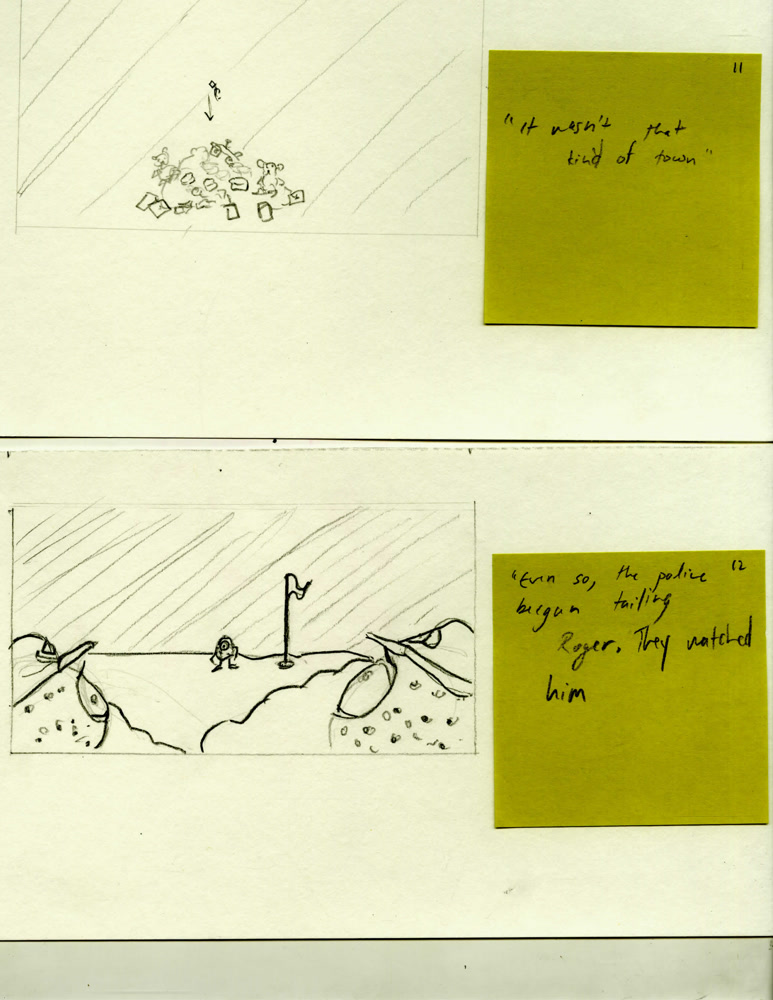 11
"It wasn't that
kind of town"
12
"Even so, the police
begun tailing
Roger. They watched
him